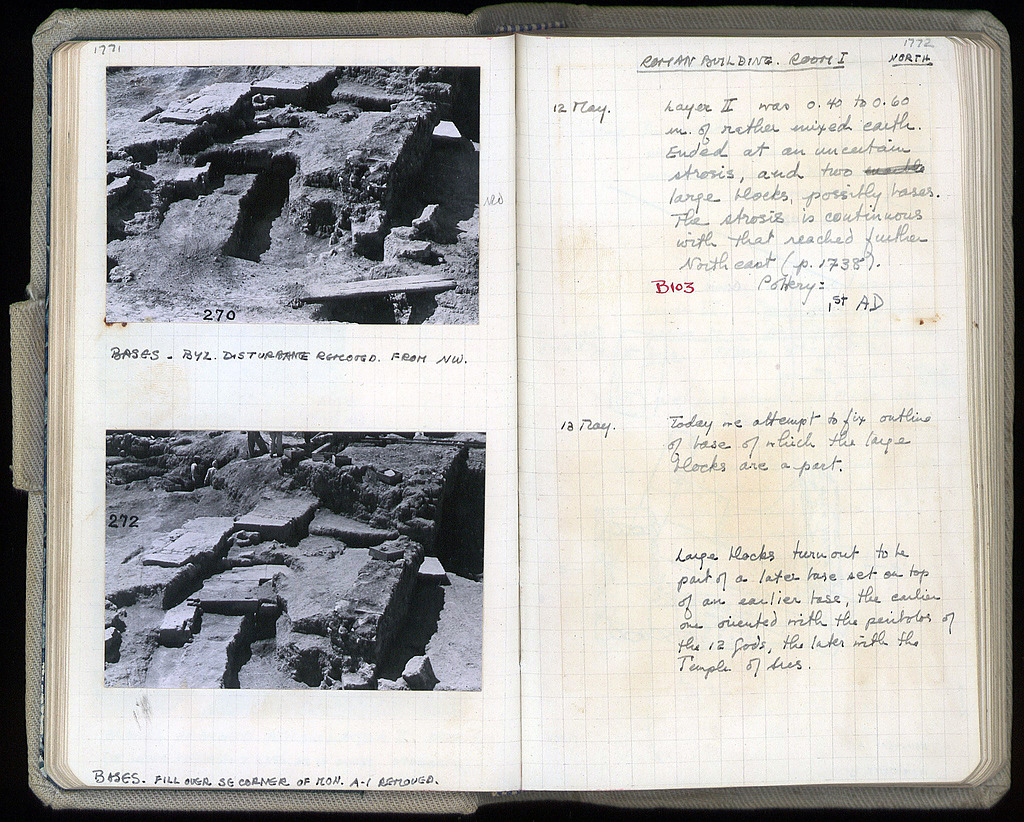 1771
270
BASES - BYZ. DISTURBANCE REMOVED. FROM NW.
272
BASES. FILL OVER SE CORNER OF MON. A-1 REMOVED.
1772
ROMAN BUILDING. ROOM I NORTH
12 May. Layer II was 0.40 to 0.60
m. of rather mixed earth.
Ended at an uncertain
strosis, and two
large blocks, possibly bases.
The strosis is continuous
with that reached further
North east (p. 1738).
B103 Pottery:
1st AD
13 May. Today we attempt to fix outline
of base of which the large
blocks are a part.
Large blocks turn out to be
part of a later base set on top
of an earlier base, the earlier
one oriented with the peribolos of
the 12 Gods, the later with the
Temple of Ares.